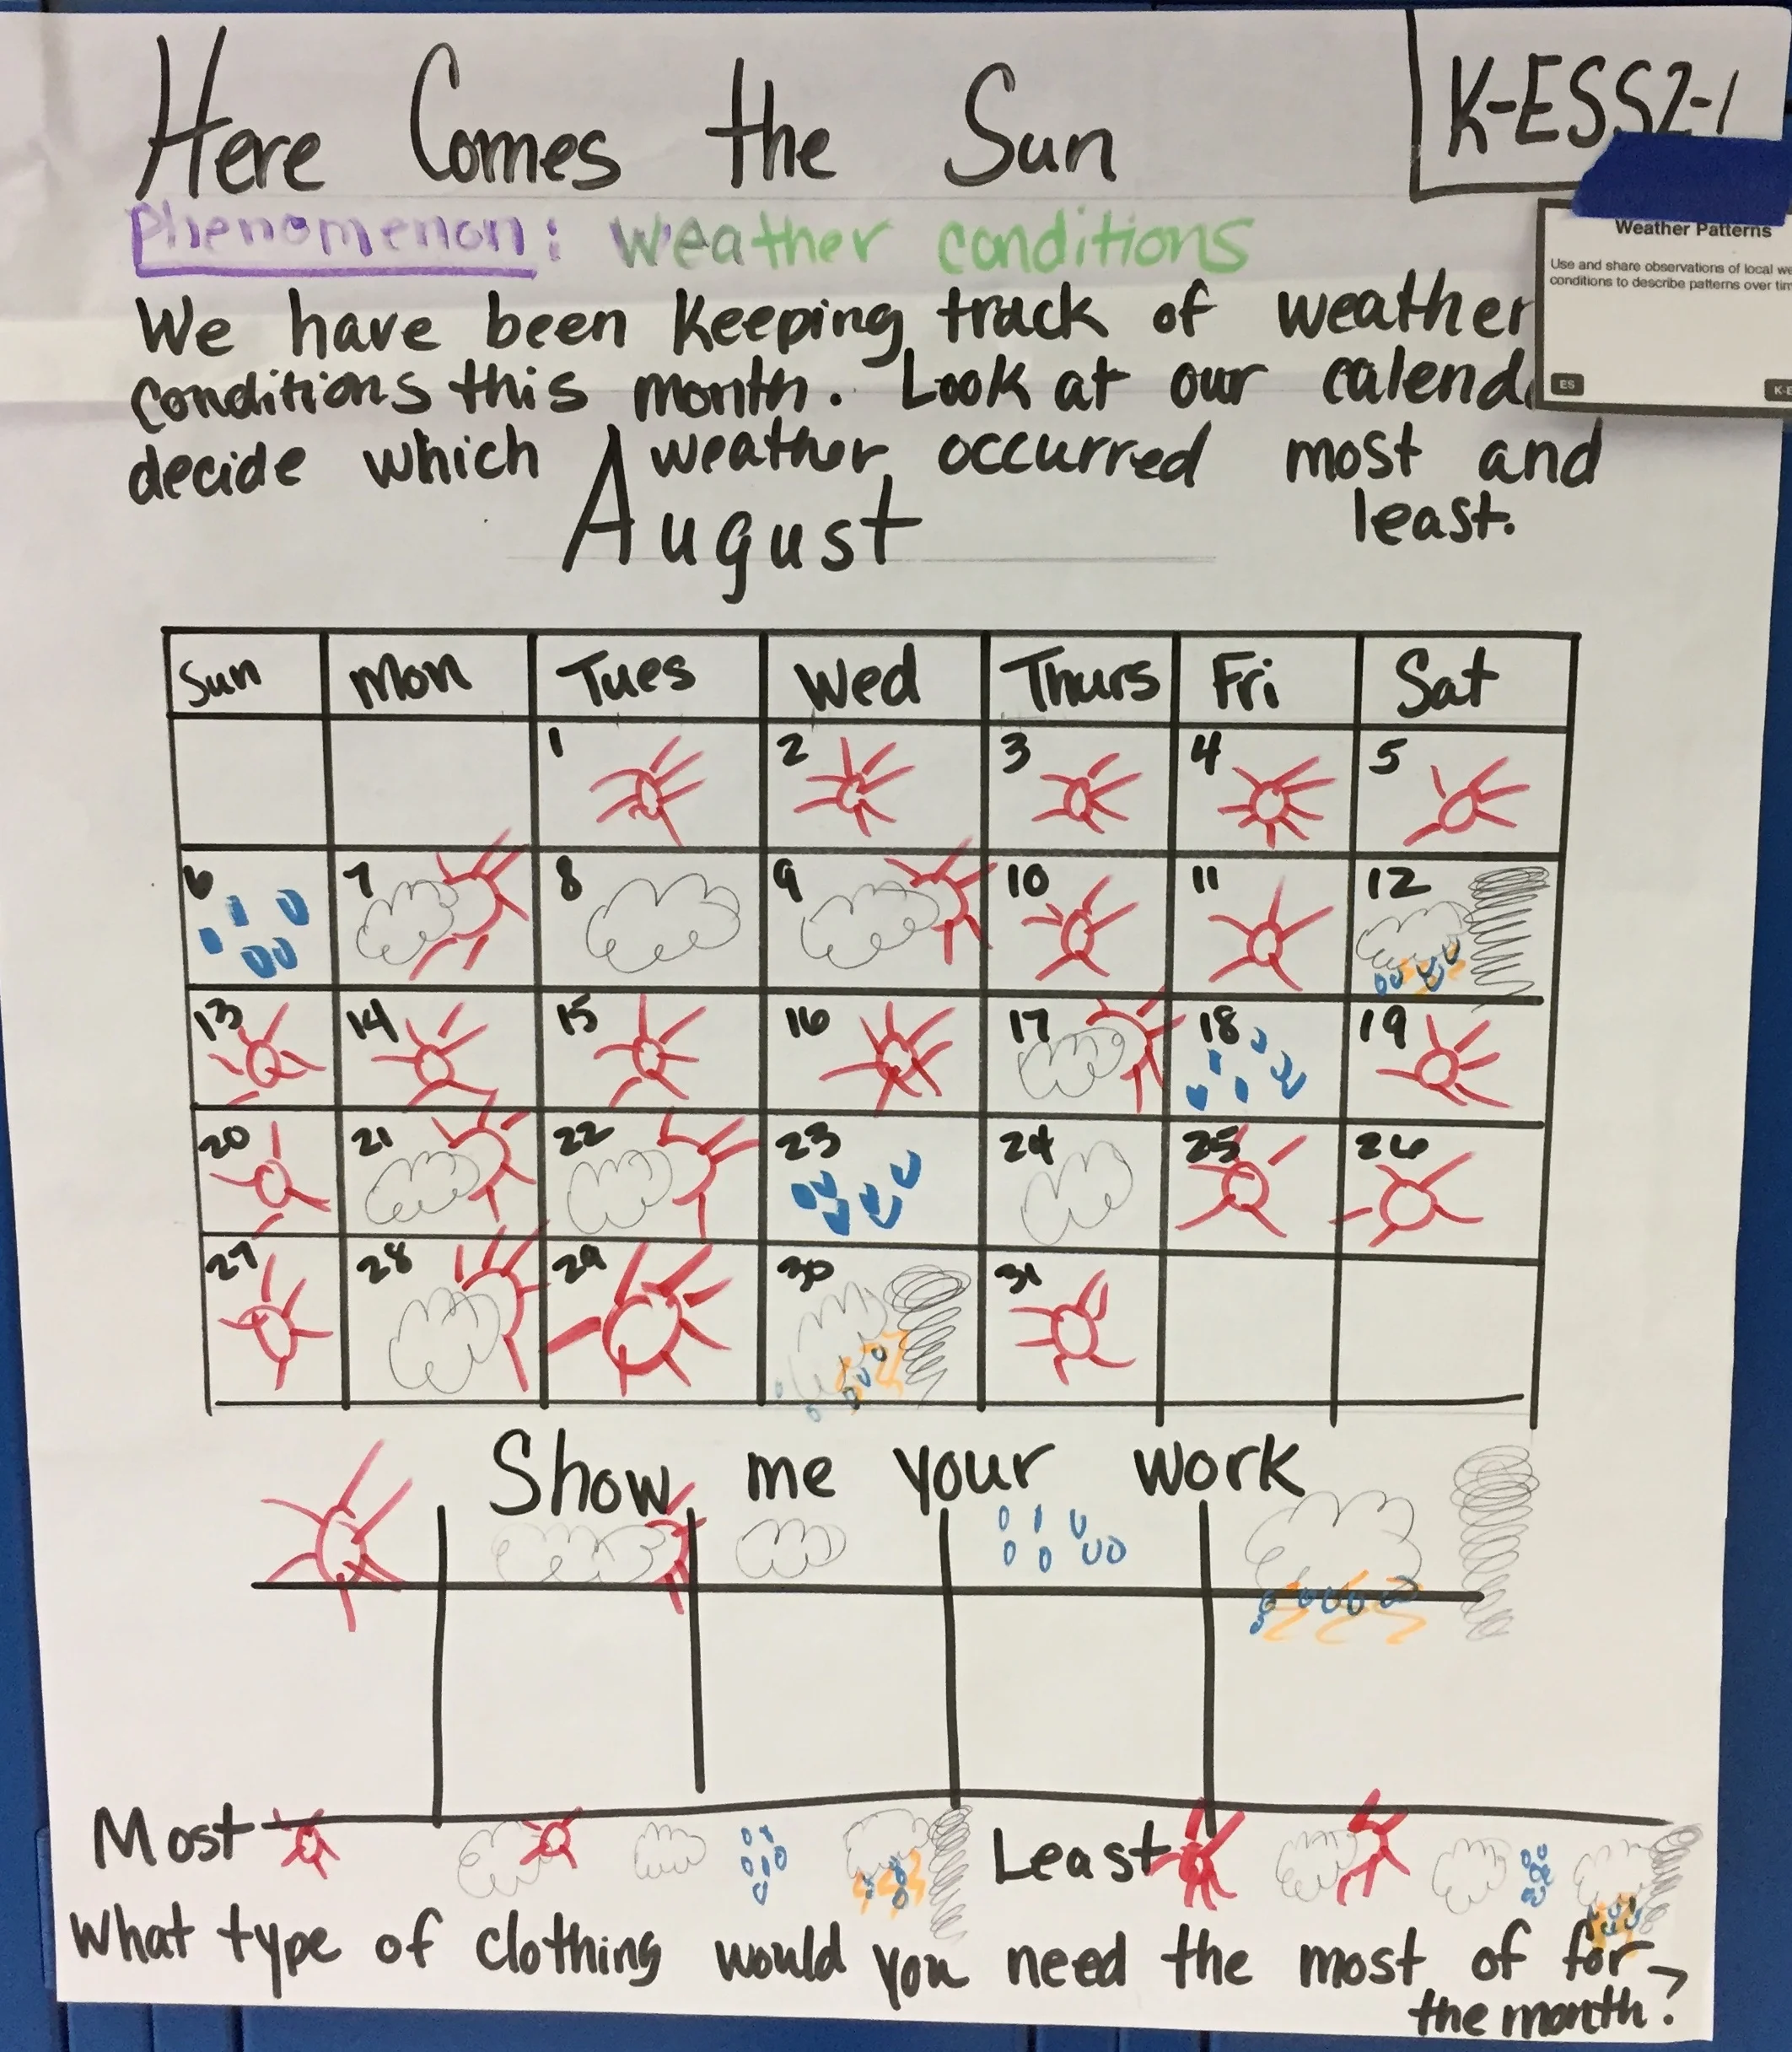 Here Comes the Sun
K-ESS2-1
Phenomenon: Weather conditions
Weather Patterns
Use and share observations of local we
conditions to describe patterns over tim
ES
K-E
We have been keeping track of weather
conditions this month. Look at our calend
decide which weather occurred most and
least.
August
Sun Mon Tues Wed Thurs Fri Sat
1 2 3 4 5
6 7 8 9 10 11 12
13 14 15 16 17 18 19
20 21 22 23 24 25 26
27 28 29 30 31
Show me your work
Most Least
What type of clothing would you need the most of for
the month?